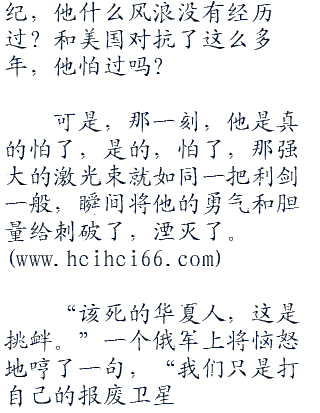 纪，他什么风浪没有经历
过？和美国对抗了这么多
年，他怕过吗？
可是，那一刻，他是真
的怕了，是的，怕了，那强
大的激光束就如同一把利剑
一般，瞬间将他的勇气和胆
量给刺破了，湮灭了。
(www.hcihci66.com)
“该死的华夏人，这是
挑衅。”一个俄军上将恼怒
地哼了一句，“我们只是打
自己的报废卫星